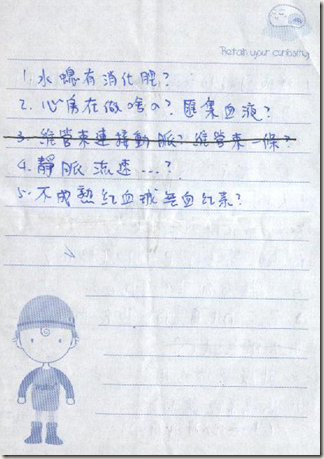 Retain your curiosity
1. 水螅有消化腔?
2. 心房在做啥の? 匯集血液?
3. 維管束連接動脈? 維管束一條?
4. 靜脈流速...?
5. 不成熟紅血球無血紅素?